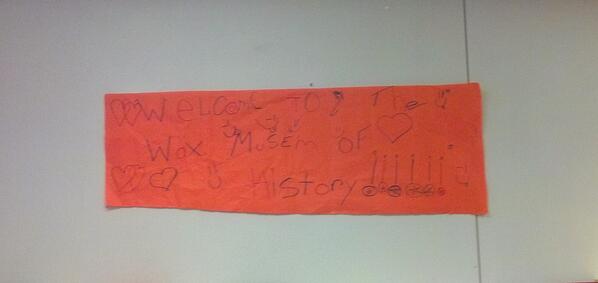 Welcome To The
Wax Musem of
History!!!!!!